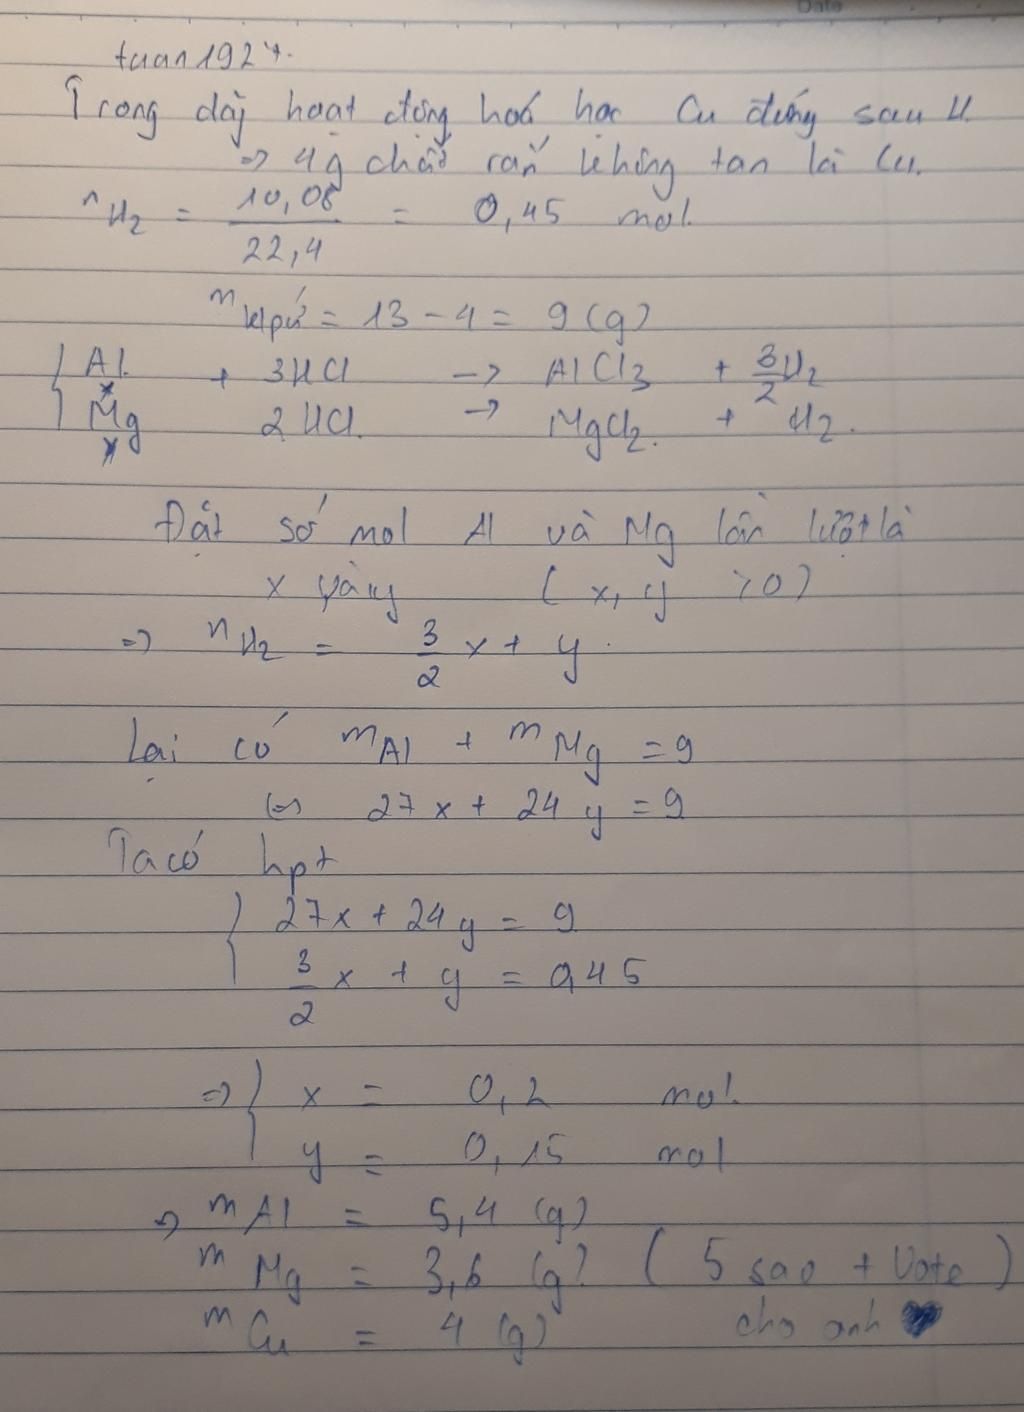 Date
tuan1924.
Trong dãy hoạt động hoá học Cu đứng sau H.
=> 4g chất rắn không tan là Cu.
nH2 = 10,08/22,4 = 0,45 mol.
mKlpứ = 13 - 4 = 9 (g)
Al + 3HCl -> AlCl3 + 3/2H2
x
Mg 2HCl. -> MgCl2. + H2.
y
Đặt số mol Al và Mg lần lượt là
x và y ( x, y >0)
=> nH2 = 3/2 x + y.
Lại có mAl + mMg = 9
<=> 27x + 24y = 9
Ta có hpt
27x + 24y = 9
3/2 x + y = 0,45
=> x = 0,2 mol.
y = 0,15 mol
=> mAl = 5,4 (g)
mMg = 3,6 (g) ( 5 sao + Vote )
mCu = 4 (g) cho anh